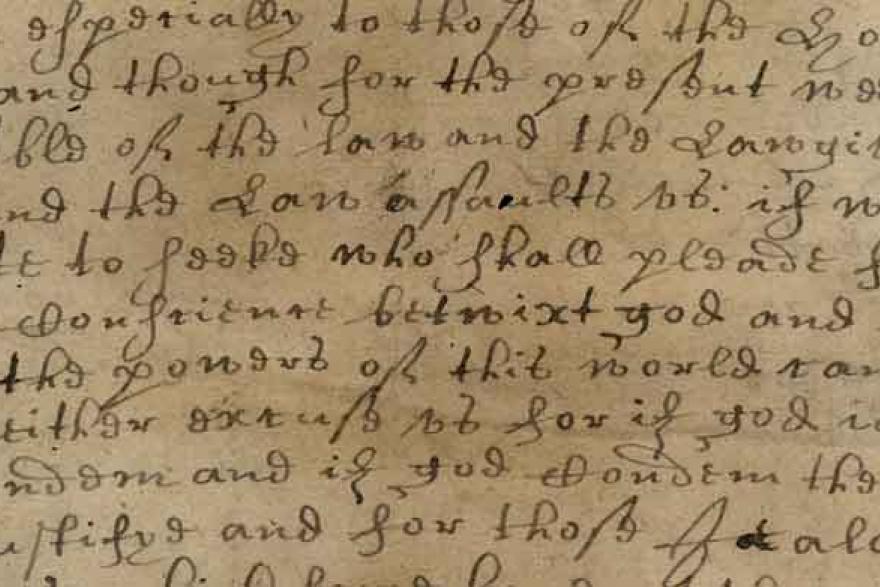 espetially to those of the Lo
and though for the present we
ble of the law and the Lawgi
nd the Law assaults vs: if w
te to seeke who shall pleade f
Conscience betwixt god and
the powers of this world can
either excuse vs for if god
ndem and if god Condem the
ustifye and for those